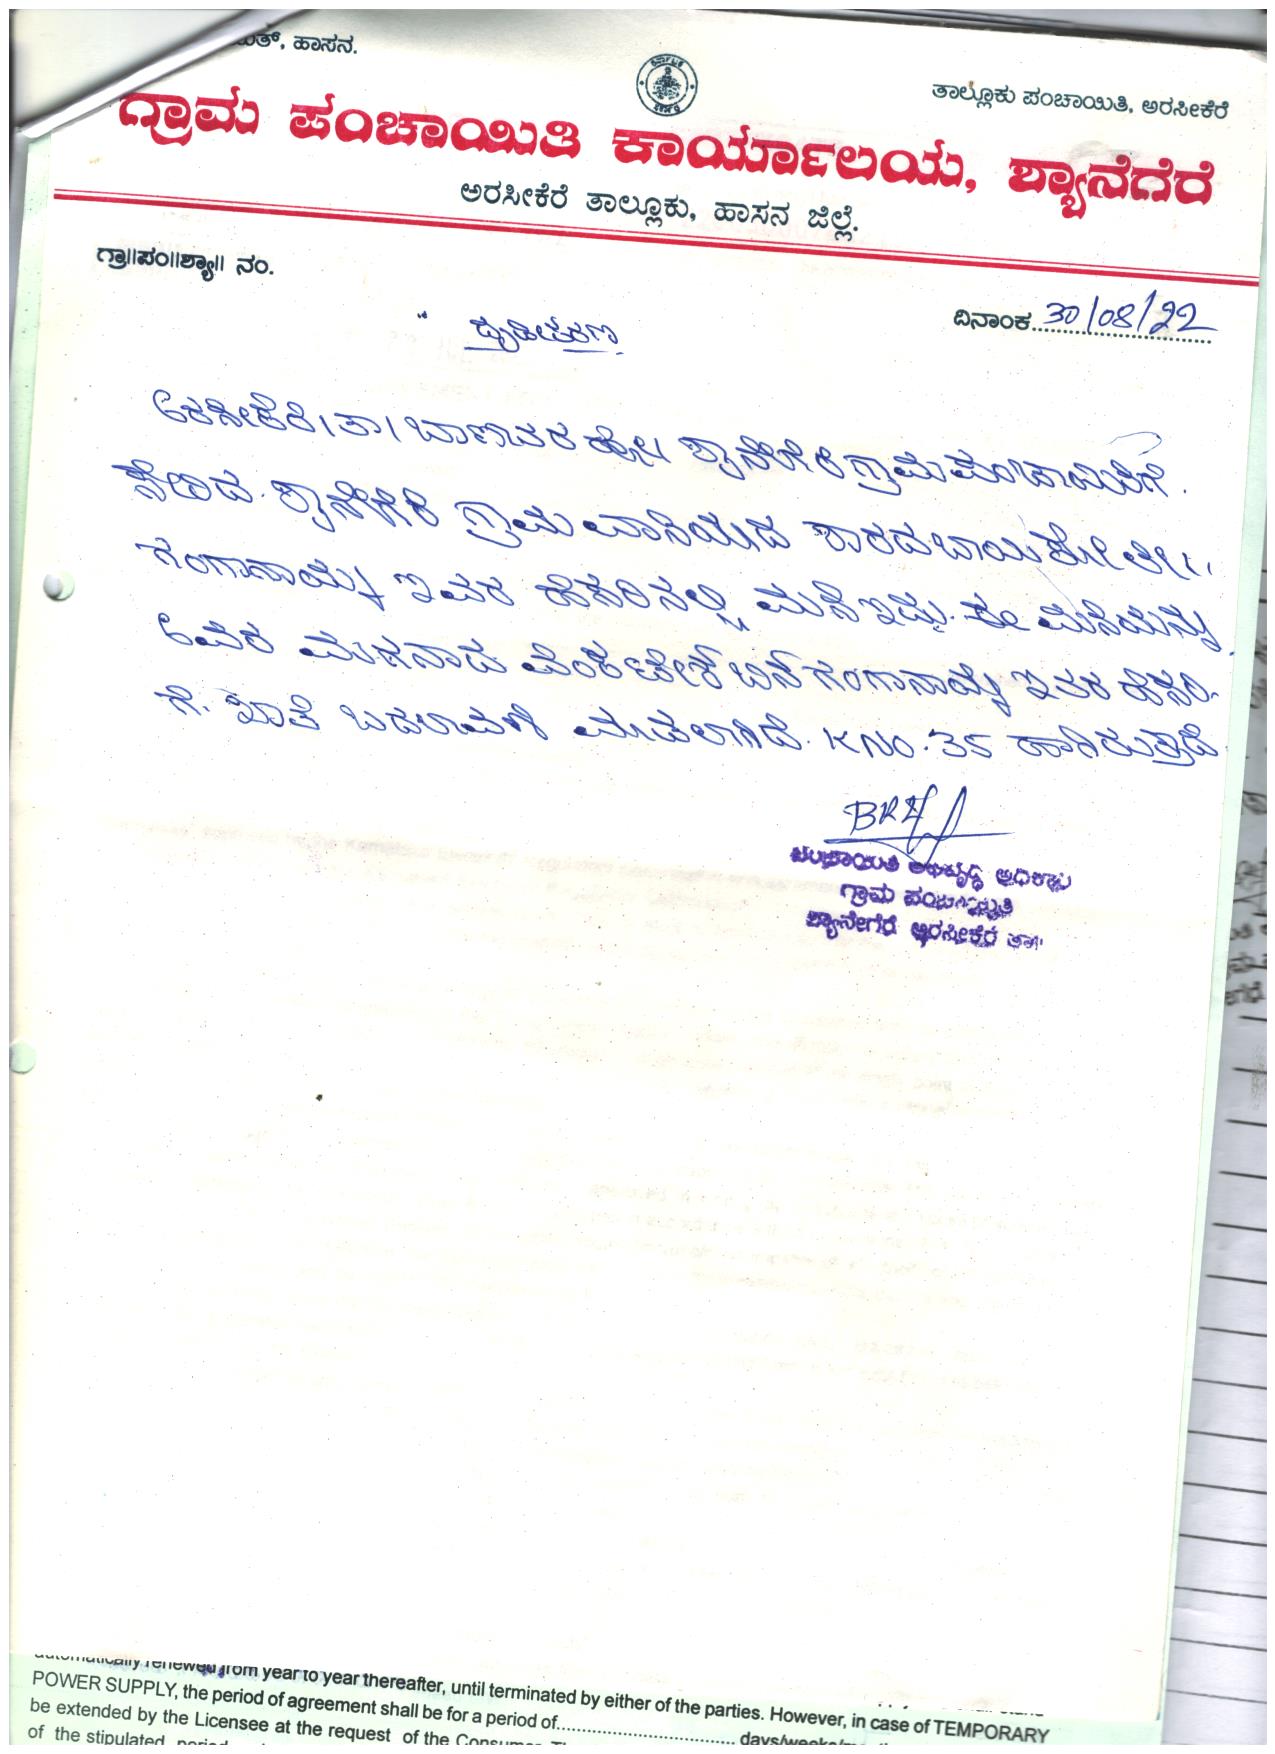 ಹಾಸನ.
ತಾಲ್ಲೂಕು ಪಂಚಾಯಿತಿ, ಅರಸೀಕೆರೆ
ಗ್ರಾಮ ಪಂಚಾಯಿತಿ ಕಾರ್ಯಾಲಯ, ಶ್ಯಾನೆಗೆರೆ
ಅರಸೀಕೆರೆ ತಾಲ್ಲೂಕು, ಹಾಸನ ಜಿಲ್ಲೆ.
ಗ್ರಾ॥ಪಂ॥ಶ್ಯಾ॥ ನಂ.
ದಿನಾಂಕ 30/08/22
" ದೃಡೀಕರಣ
ಅರಸೀಕೆರೆ। ತಾ। ಬಾಣವರ ಹೋ। ಶ್ಯಾನೇಗೆರೆ ಗ್ರಾಮ ಪಂಚಾಯಿತಿಗೆ
ಸೇರಿದ ಶ್ಯಾನೇಗೆರೆ ಗ್ರಾಮ ವಾಸಿಯಾದ ಶಾರದಬಾಯಿ ಕೋಂ
ಗಂಗಾನಾಯ್ಕ ಇವರ ಹೆಸರಿನಲ್ಲಿ ಮನೆ ಇದ್ದು. ಈ ಮನೆಯನ್ನು
ಅವರ ಮಗನಾದ ವೆಂಕಟೇಶ್ ಬಿನ್ ಗಂಗಾನಾಯ್ಕ ಇವರ ಹೆಸರಿ-
ಗೆ. ಖಾತೆ ಬದಲಾವಣೆ ಮಾಡಲಾಗಿದೆ. KNO. 35 ಆಗಿರುತ್ತದೆ.
ಪಂಚಾಯಿತಿ ಅಭಿವೃದ್ಧಿ ಅಧಿಕಾರಿ
ಗ್ರಾಮ ಪಂಚಾಯ್ತಿ
ಶ್ಯಾನೇಗೆರೆ ಅರಸೀಕೆರೆ ತಾ॥
automatically renewed from year to year thereafter, until terminated by either of the parties. However, in case of TEMPORARY
POWER SUPPLY, the period of agreement shall be for a period of.............................. days/weeks
be extended by the Licensee at the request of the
of the stipulated